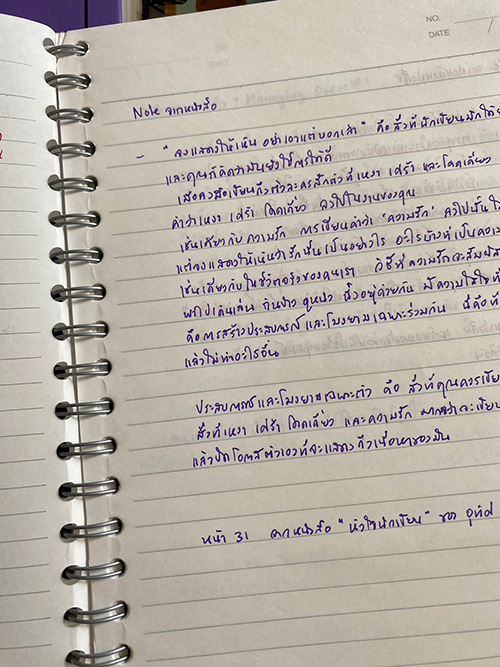 NO.
DATE
Note จากหนังสือ
- " จงแสดงให้เห็น อย่าเอาแต่บอกเล่า " คือ สิ่งที่นักเขียนมักได้
และคุณก็คิดว่ามันยังใช้การได้ดี
เมื่อคุณเขียนถึงตัวละครสักตัวที่เหงา เศร้า และโดดเดี่ยว
คำว่าเหงา เศร้า โดดเดี่ยว ลงไปในงานของคุณ
เช่นเดียวกับ ความรัก การเขียนคำว่า "ความรัก" ลงไปนั้น
แต่จงแสดงให้เห็นว่ารักนั้นเป็นอย่างไร อะไรบ้างที่เป็นความ
เช่นเดียวกับในชีวิตจริงของคนเรา วิธีที่ความรักจะสัมผัส
พากันไปเดินเล่น กินข้าว ดูหนัง นั่งอยู่ด้วยกัน มีความใส่ใจ
คือการสร้างประสบการณ์และโมงยามเฉพาะร่วมกัน นี่คือที่
แล้วไม่ทำอะไรอื่น
ประสบการณ์และโมงยามเฉพาะตัว คือ สิ่งที่คุณควรเขียน
สิ่งที่เหงา เศร้า โดดเดี่ยว และความรัก มากกว่าจะเขียน
แล้วปิดโอกาสตัวเองที่จะแสดงถึงเนื้อหาของมัน
หน้า 31 จากหนังสือ "หัวใจนักเขียน" ของ